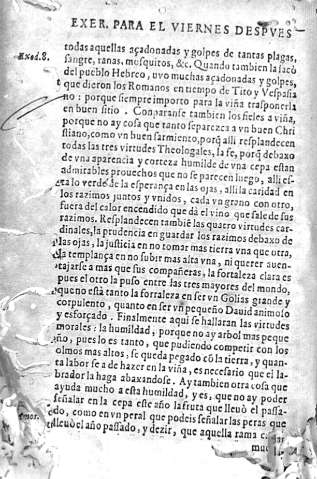 EXER. PARA EL VIERNES DESPVES
Exod. 8.
todas aquellas açadonadas y golpes de tantas plagas,
sangre, ranas, mosquitos, &c. Quando tambien la sacò
del pueblo Hebreo, uvo muchas açadonadas y golpes,
que dieron los Romanos en tiempo de Tito y Vespasia
no: porque siempre importo para la viña trasponerla
en buen sitio. Comparanse tambien los fieles a viña,
porque no ay cosa que tanto se parezca a vn buen Chri
stiano, como vn buen sarmiento, porq̃ alli resplandecen
todas las tres virtudes Theologales, la fe, porq̃ debaxo
de vna aparencia y corteza humilde de vna cepa estan
admirables prouechos que no se parecen luego, alli es-
ta lo verde de la esperança en las ojas, alli la caridad en
los razimos juntos y vnidos, cada vn grano con otro,
fuera del calor encendido que dà el vino que sale de sus
razimos. Resplandecen tambiẽ las quatro virtudes car-
dinales, la prudencia en guardar los razimos debaxo de
las ojas, la justicia en no tomar mas tierra vna que otra,
la templança en no subir mas alta vna, ni querer auen-
tajarse a mas que sus compañeras, la fortaleza clara es
pues el otro la puso entre las tres mayores del mundo,
que no està tanto la fortaleza en ser vn Golias grande y
corpulento, quanto en ser vn pequeño Dauid animoso
y esforçado. Finalmente aqui se hallaran las virtudes
morales: la humildad, porque no ay arbol mas peque
ño, pues lo es tanto, que pudiendo competir con los
olmos mas altos, se queda pegado cõ la tierra, y quan-
ta labor se a de hazer en la viña, es necesario que el la-
brador la haga abaxandose. Ay tambien otra cosa que
ayuda mucho a esta humildad, y es, que no ay poder
señalar en la cepa este año la fruta que lleuò el passa-
do, como en vn peral que podeis señalar las peras que
lleuò el año passado, y dezir, que aquella rama